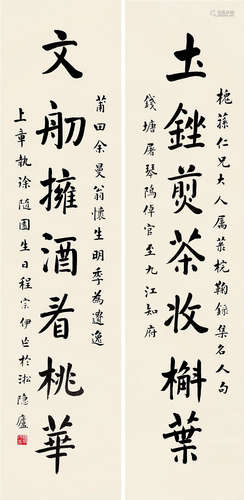 土銼煎茶收槲葉
槐蓀仁兄大人属葉梡鞠録集名人句
錢塘屠琴隖倬官至九江知府
文舠擁酒看桃華
莆田余曼翁懷生明季為遺逸
上章執徐隨園生日程宗伊作於淞隱廬